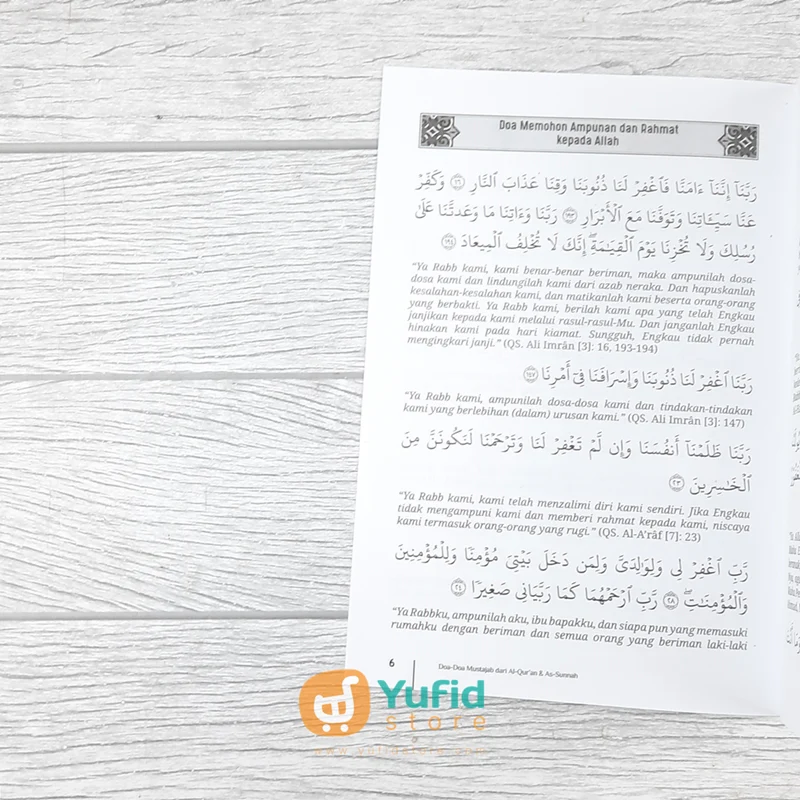 Doa Memohon Ampunan dan Rahmat
kepada Allah
رَبَّنَآ إِنَّنَآ ءَامَنَّا فَٱغْفِرْ لَنَا ذُنُوبَنَا وَقِنَا عَذَابَ ٱلنَّارِ ۝١٦ وَكَفِّرْ
عَنَّا سَيِّـَٔاتِنَا وَتَوَفَّنَا مَعَ ٱلْأَبْرَارِ ۝١٩٣ رَبَّنَا وَءَاتِنَا مَا وَعَدتَّنَا عَلَىٰ
رُسُلِكَ وَلَا تُخْزِنَا يَوْمَ ٱلْقِيَـٰمَةِۗ إِنَّكَ لَا تُخْلِفُ ٱلْمِيعَادَ ۝١٩٤
“Ya Rabb kami, kami benar-benar beriman, maka ampunilah dosa-
dosa kami dan lindungilah kami dari azab neraka. Dan hapuskanlah
kesalahan-kesalahan kami, dan matikanlah kami beserta orang-orang
yang berbakti. Ya Rabb kami, berilah kami apa yang telah Engkau
janjikan kepada kami melalui rasul-rasul-Mu. Dan janganlah Engkau
hinakan kami pada hari kiamat. Sungguh, Engkau tidak pernah
mengingkari janji.” (QS. Ali Imrân [3]: 16, 193-194)
رَبَّنَا ٱغْفِرْ لَنَا ذُنُوبَنَا وَإِسْرَافَنَا فِىٓ أَمْرِنَا ۝١٤٧
“Ya Rabb kami, ampunilah dosa-dosa kami dan tindakan-tindakan
kami yang berlebihan (dalam) urusan kami.” (QS. Ali Imrân [3]: 147)
رَبَّنَا ظَلَمْنَآ أَنفُسَنَا وَإِن لَّمْ تَغْفِرْ لَنَا وَتَرْحَمْنَا لَنَكُونَنَّ مِنَ
ٱلْخَـٰسِرِينَ ۝٢٣
“Ya Rabb kami, kami telah menzalimi diri kami sendiri. Jika Engkau
tidak mengampuni kami dan memberi rahmat kepada kami, niscaya
kami termasuk orang-orang yang rugi.” (QS. Al-A’râf [7]: 23)
رَبِّ ٱغْفِرْ لِى وَلِوَٰلِدَىَّ وَلِمَن دَخَلَ بَيْتِىَ مُؤْمِنًا وَلِلْمُؤْمِنِينَ
وَٱلْمُؤْمِنَـٰتِۖ ۝٢٨ رَبِّ ٱرْحَمْهُمَا كَمَا رَبَّيَانِى صَغِيرًا ۝٢٤
“Ya Rabbku, ampunilah aku, ibu bapakku, dan siapa pun yang memasuki
rumahku dengan beriman dan semua orang yang beriman laki-laki
6
Doa-Doa Mustajab dari Al-Qur’an & As-Sunnah
Yufid
store
www.yufidstore.com